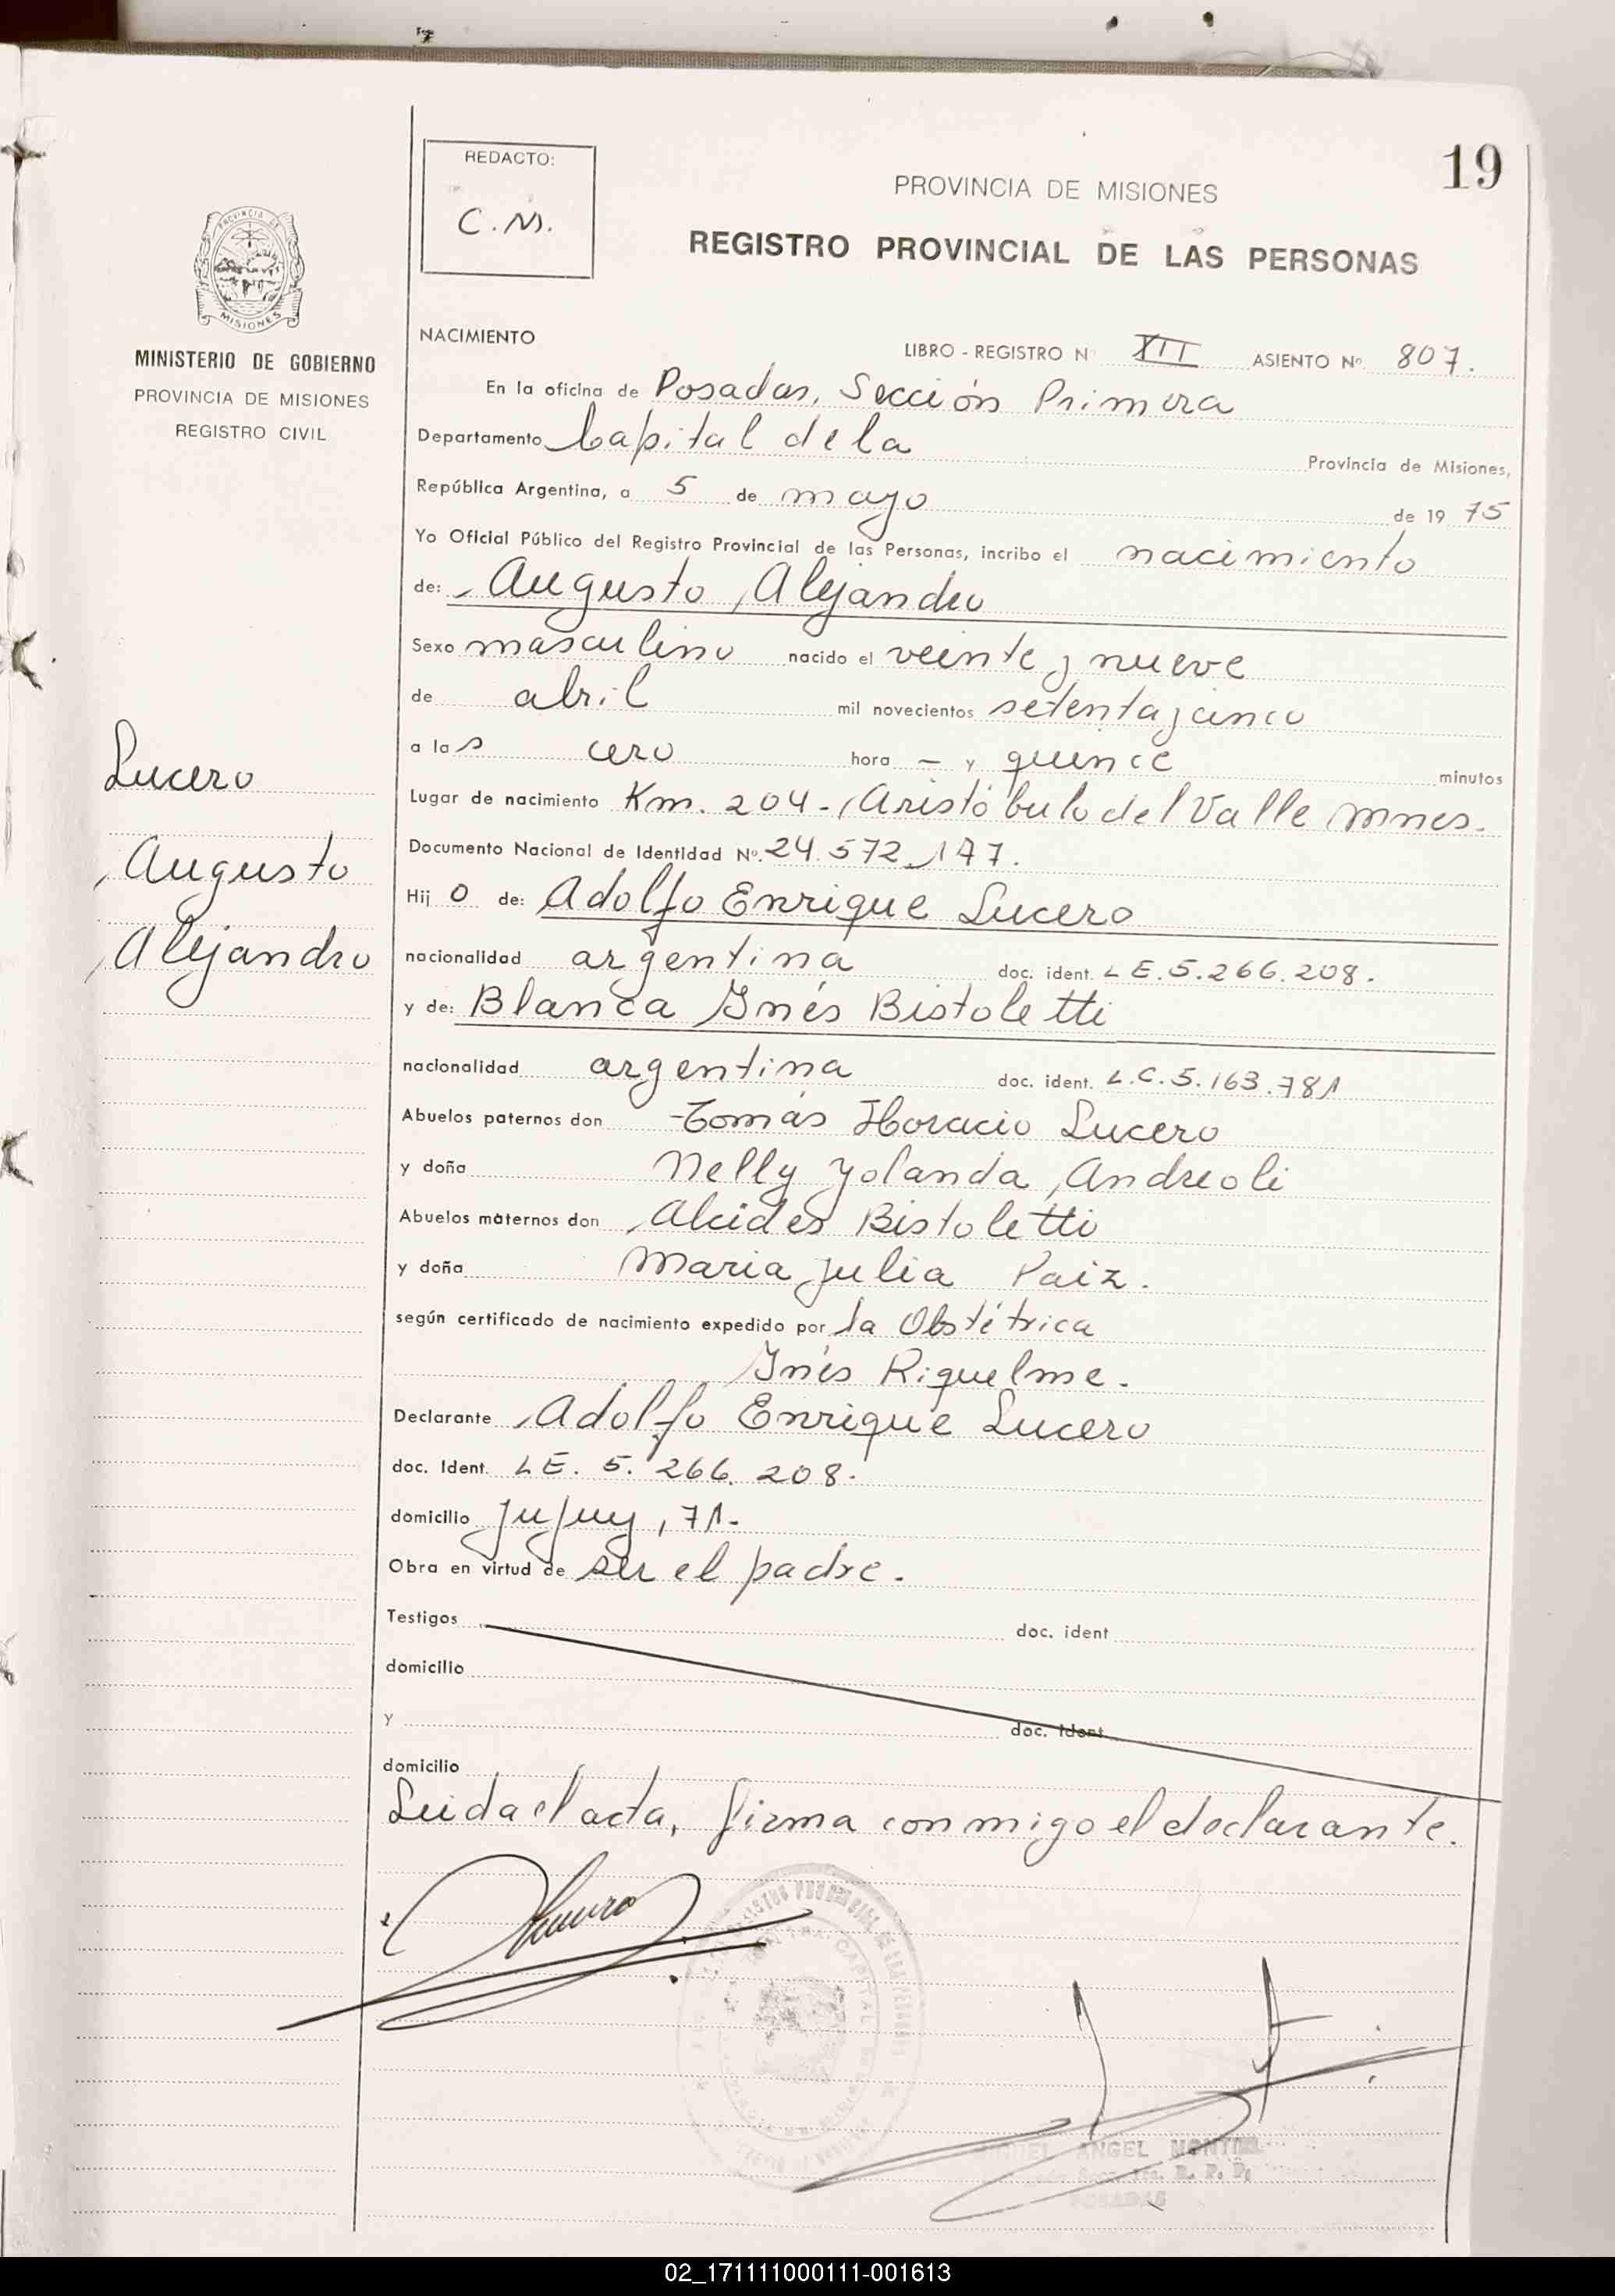 19
REDACTO:
C.M.
PROVINCIA DE MISIONES
REGISTRO PROVINCIAL DE LAS PERSONAS
PROVINCIA DE
MISIONES
MINISTERIO DE GOBIERNO
PROVINCIA DE MISIONES
REGISTRO CIVIL
NACIMIENTO
LIBRO - REGISTRO Nº XII ASIENTO Nº 807.
En la oficina de Posadas, Sección Primera
Departamento Capital de la Provincia de Misiones,
República Argentina, a 5 de mayo de 19 75
Yo Oficial Público del Registro Provincial de las Personas, incribo el nacimiento
de: Augusto Alejandro
Sexo masculino nacido el veinte y nueve
de abril mil novecientos setenta y cinco
a las cero hora - y quince minutos
Lugar de nacimiento Km. 204 - Aristóbulo del Valle Mnes.
Documento Nacional de Identidad Nº. 24.572.177.
Hij o de: Adolfo Enrique Lucero
nacionalidad argentina doc. ident. LE. 5.266.208.
y de: Blanca Inés Bistoletti
nacionalidad argentina doc. ident. L.C. 5.163.781
Abuelos paternos don Tomás Horacio Lucero
y doña Nelly Yolanda Andreoli
Abuelos maternos don Alcides Bistoletti
y doña Maria Julia Paiz.
según certificado de nacimiento expedido por la Obstétrica
Inés Riquelme.
Declarante Adolfo Enrique Lucero
doc. Ident. LE. 5.266.208.
domicilio Jujuy, 71.-
Obra en virtud de ser el padre.
Testigos doc. ident
domicilio
y doc. Ident
domicilio
Leida el acta, firma conmigo el declarante.
Lucero
Augusto
Alejandro
ANGEL
R. P. P.
POSADAS
02_171111000111-001613